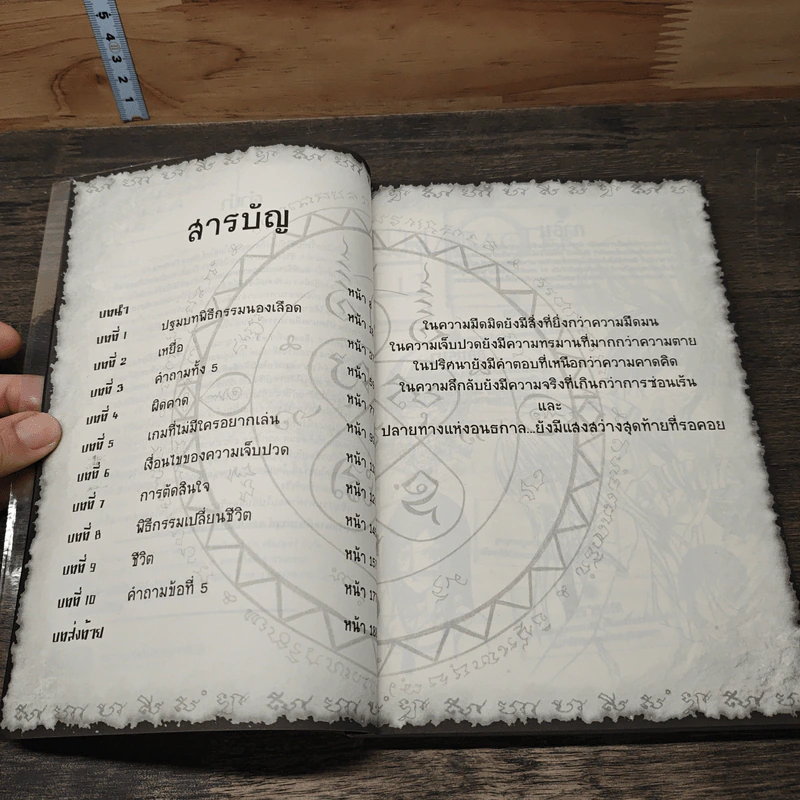 สารบัญ
บทนำ หน้า
บทที่ 1 ปฐมบทพิธีกรรมนองเลือด หน้า
บทที่ 2 เหยื่อ หน้า
บทที่ 3 คำถามทั้ง 5 หน้า
บทที่ 4 ผิดคาด หน้า
บทที่ 5 เกมที่ไม่มีใครอยากเล่น หน้า
บทที่ 6 เงื่อนไขของความเจ็บปวด หน้า
บทที่ 7 การตัดสินใจ หน้า
บทที่ 8 พิธีกรรมเปลี่ยนชีวิต หน้า
บทที่ 9 ชีวิต หน้า
บทที่ 10 คำถามข้อที่ 5 หน้า
บทส่งท้าย หน้า
ในความมืดมิดยังมีสิ่งที่ยิ่งกว่าความมืดมน
ในความเจ็บปวดยังมีความทรมานที่มากกว่าความตาย
ในปริศนายังมีคำตอบที่เหนือกว่าความคาดคิด
ในความลึกลับยังมีความจริงที่เกินกว่าการซ่อนเร้น
และ
ปลายทางแห่งอนธกาล...ยังมีแสงสว่างสุดท้ายที่รอคอย
5 4 3 2 1